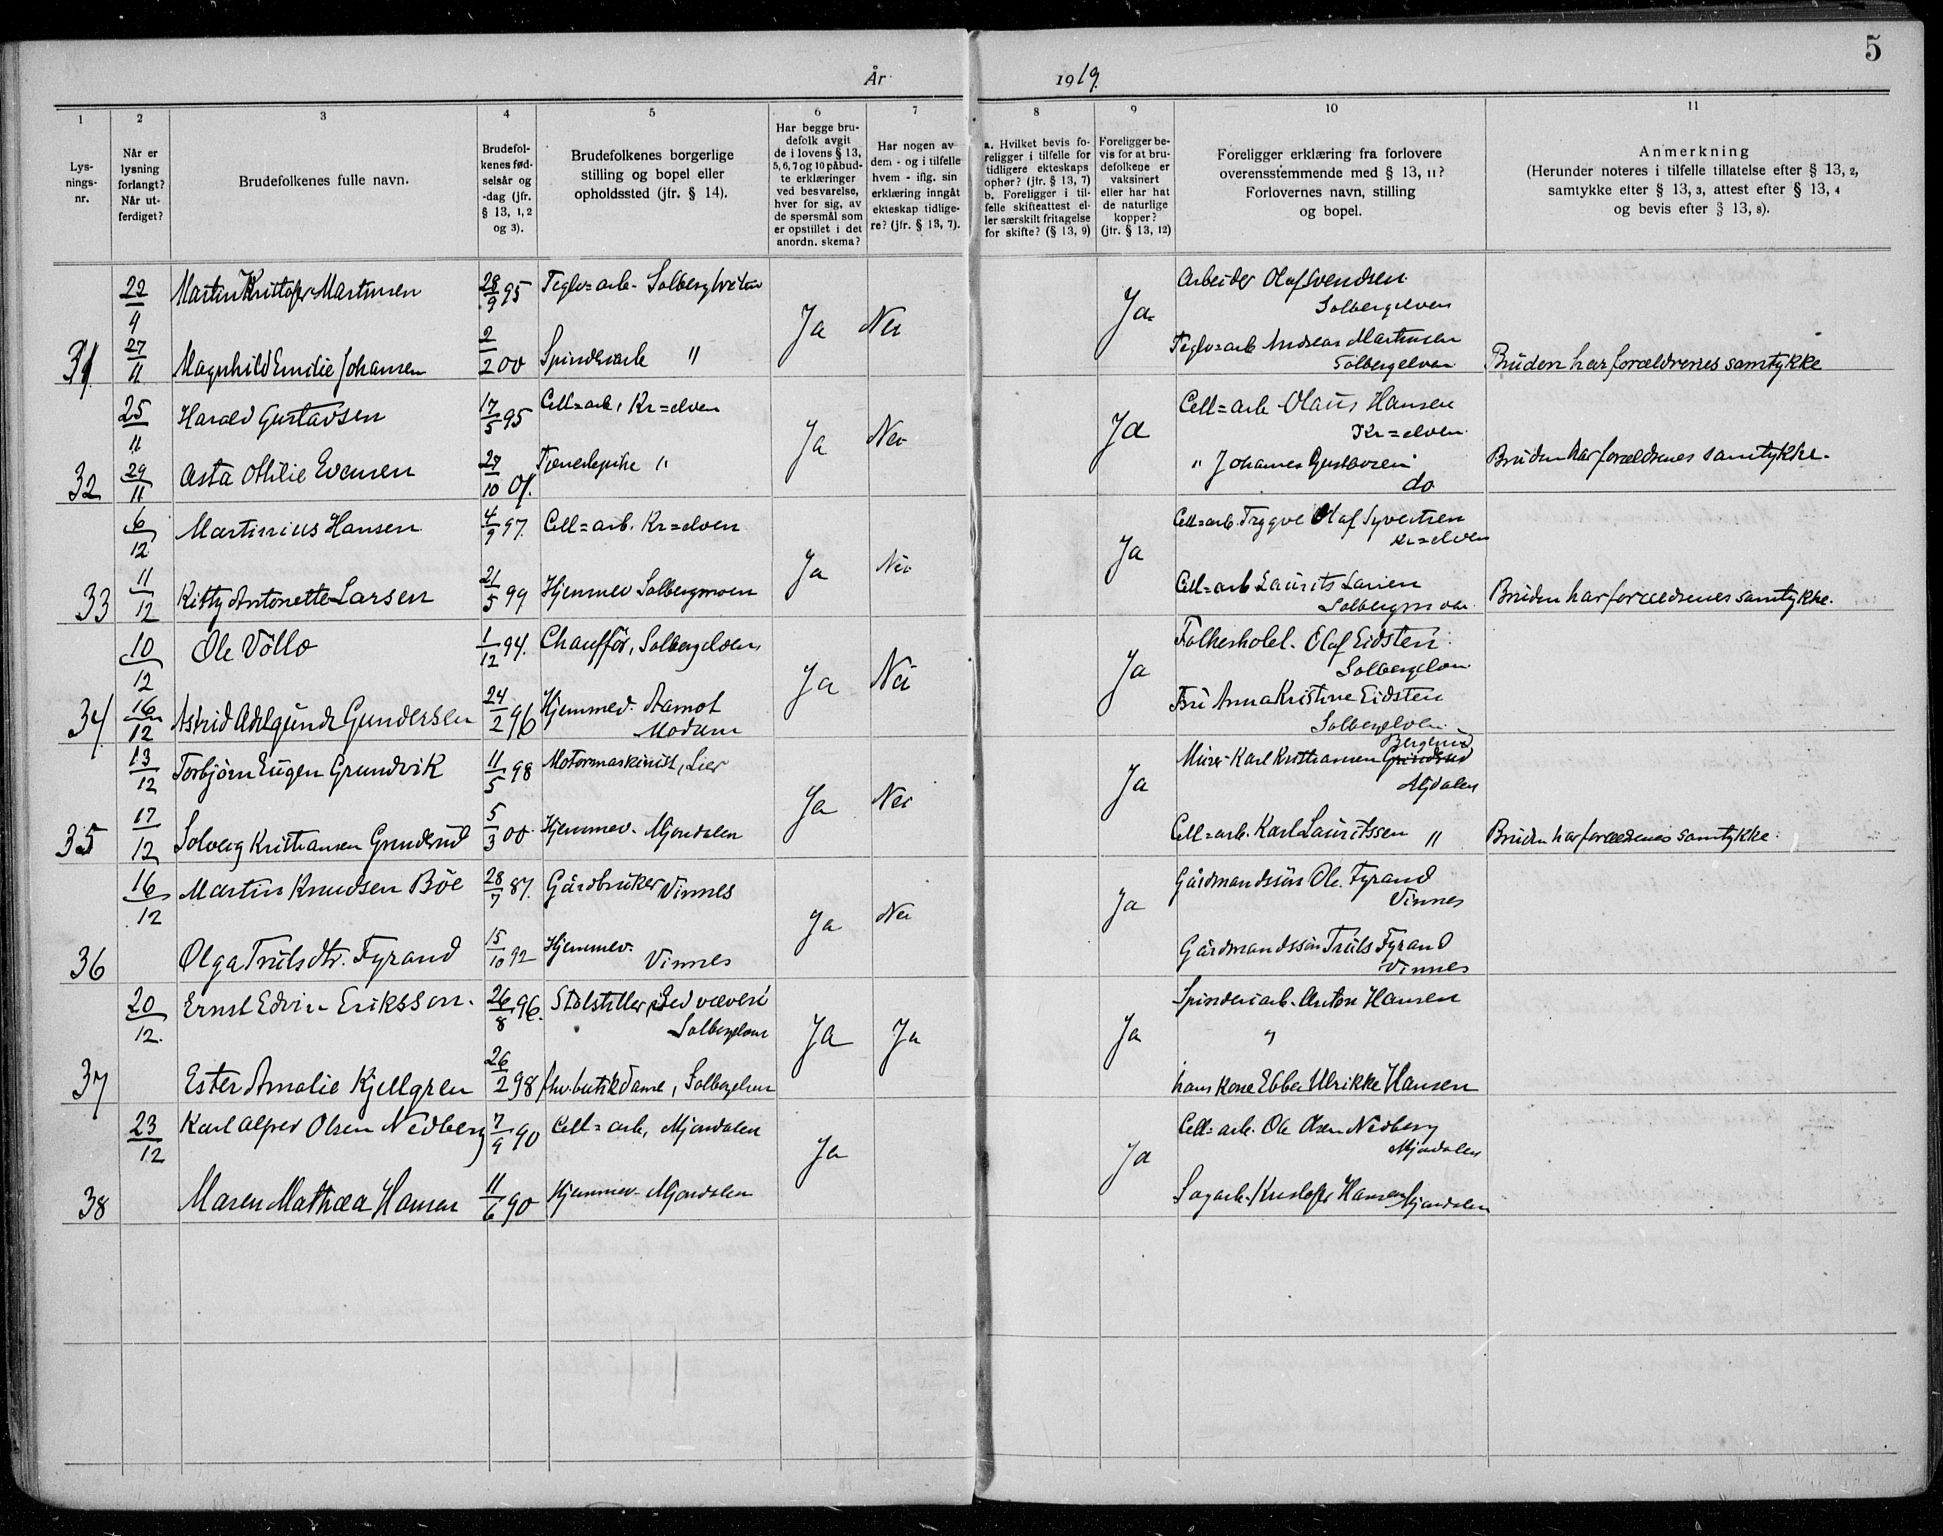 5
År 1919.
1 2 3 4 5 6 7 8 9 10 11
Lysnings-nr.
Når er lysning forlangt? Når utferdiget?
Brudefolkenes fulle navn.
Brudefolkenes fødselsår og -dag (jfr. § 13, 1, 2 og 3).
Brudefolkenes borgerlige stilling og bopel eller opholdssted (jfr. § 14).
Har begge brudefolk avgit de i lovens § 13, 5, 6, 7 og 10 påbudte erklæringer ved besvarelse, hver for sig, av de spørsmål som er opstillet i det anordn. skema?
Har nogen av dem - og i tilfelle hvem - iflg. sin erklæring inngåt ekteskap tidligere? (jfr. § 13, 7).
a. Hvilket bevis foreligger i tilfelle for tidligere ekteskaps ophør? (jfr. § 13, 7) b. Foreligger i tilfelle skifteattest eller særskilt fritagelse for skifte? (§ 13, 9)
Foreligger bevis for at brudefolkene er vaksinert eller har hat de naturlige kopper? (jfr. § 13, 12)
Foreligger erklæring fra forlovere overensstemmende med § 13, 11? Forlovernes navn, stilling og bopel.
Anmerkning (Herunder noteres i tilfelle tillatelse efter § 13, 2, samtykke efter § 13, 3, attest efter § 13, 4 og bevis efter § 13, 8).
Martin Kristofer Martinsen 28/9 95 Teglv=arb. Ja Nei Ja Arbeider Olaf Svendsen
Solbergelven
31 27/11 Magnhild Emilie Johansen 2/2 00 Spinderiarb " Teglv=arb Andreas Martinsen
Solbergelven Bruden har forældrenes samtykke
25/11 Harald Gustavsen 17/5 95 Cell=arb, Kr=elven Ja Nei Ja Cell=arb Olaus Hansen
Kr=elven
32 29/11 Asta Othilie Evensen 27/10 01. Tjenestepike " " Johannes
do Bruden har forældrenes samtykke.
6/12 Martinius Hansen 4/9 97. Cell=arb. Kr=elven Ja Nei Ja Cell=arb. Trygve Olaf Syvertsen
Kr=elven
33 11/12 Kitty Antonette Larsen 21/5 99 Hjemmev Solbergmoen Cell=arb Laurits Larsen
Solbergmoen Bruden har forældrenes samtykke.
10/12 Ole Völlo 1/12 94. Chaufför, Solbergelven Ja Nei Ja Olaf Eidsten
Solbergelven
34 16/12 Astrid Adelgunde Gundersen 24/2 96 Hjemmev. Aamot
Modum Fru Anna Kristine Eidsten
Solbergelven
13/12 Torbjörn Eugen Grundvik 11/5 98 Motormaskinist, Lier Ja Nei Ja Murer Karl Kristiansen Grinderud Bergerud
Mjdalen
35 17/12 Solveig Kristiansen 5/3 00 Hjemmev. Mjøndalen Cell=arb. Karl Lauritssen " Bruden har forældrenes samtykke.
16/12 Martin Knudsen Böe 28/7 87. Gårdbruker Vinnes Ja Nei Ja Gårdmandssön Ole Fyrand
Vinnes
36 Olga Trulsdtr. Fyrand 15/10 92 Hjemmev.
Vinnes Gårdmandssön Truls Fyrand
Vinnes
20/12. Ernst Edvin Eriksson. 26/8 96. Stolstiller, Sed væveri
Solbergelven Ja Ja Ja Spinderiarb. Anton Hansen
"
37 Ester Amalie Kjellgren 26/2 98 fhv. butikdame, Solbergelven hans kone Ebba Ulrikke Hansen
23/12 Karl Alfred Olsen Nedberg 7/9 90 Cell=arb, Mjøndalen Ja Ja Cell=arb. Ole Olsen Nedberg
Mjøndalen
38 Maren Mathea Hansen 11/6 90 Hjemmev. Mjøndalen Sagarb. Kristofer Hansen Mjøndalen